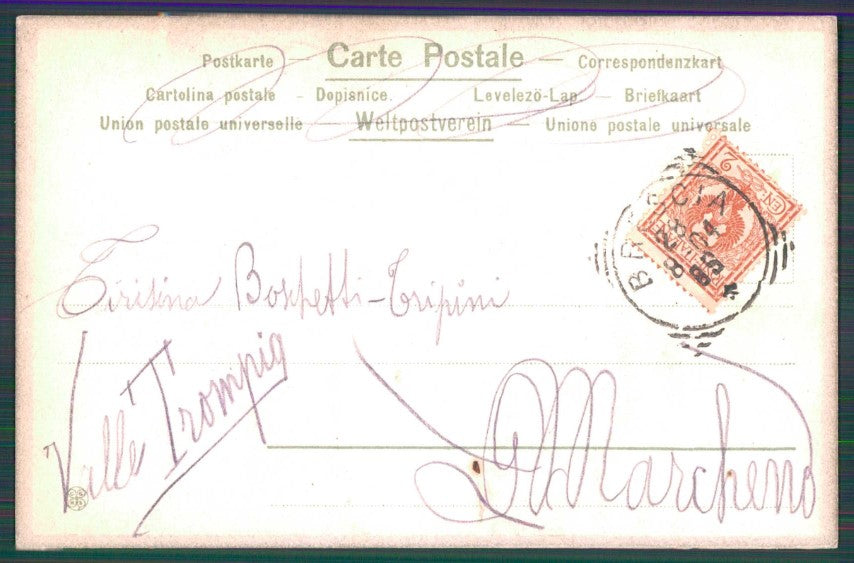 Postkarte — Carte Postale — Correspondenzkart
Cartolina postale - Dopisnice. Levelezö-Lap — Briefkaart
Union postale universelle — Weltpostverein — Unione postale universale
BRESCIA
CEN. 2
Boschetti-Tripini
Valle Trompia
Marcheno